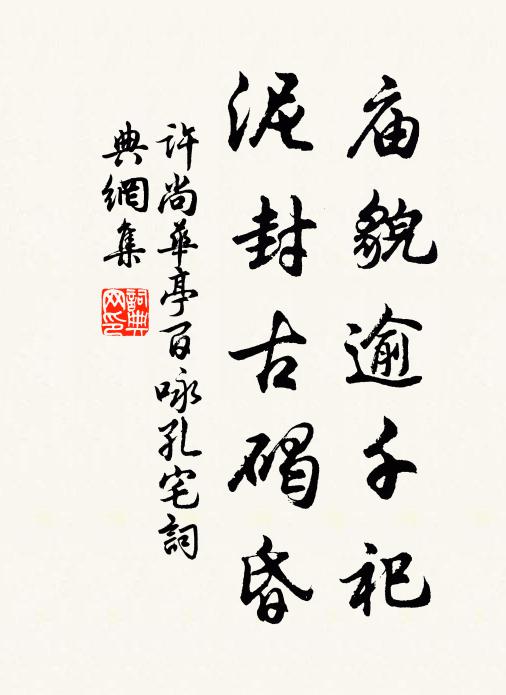 庙貌逾千祀
泥封古碣昏
许尚华亭百咏孔宅词
典網集
詞典
网印